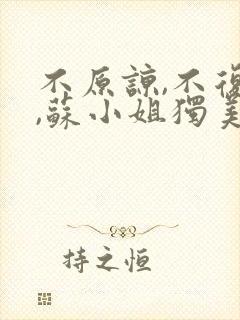 不原諒,不復
,蘇小姐獨美
持之恒